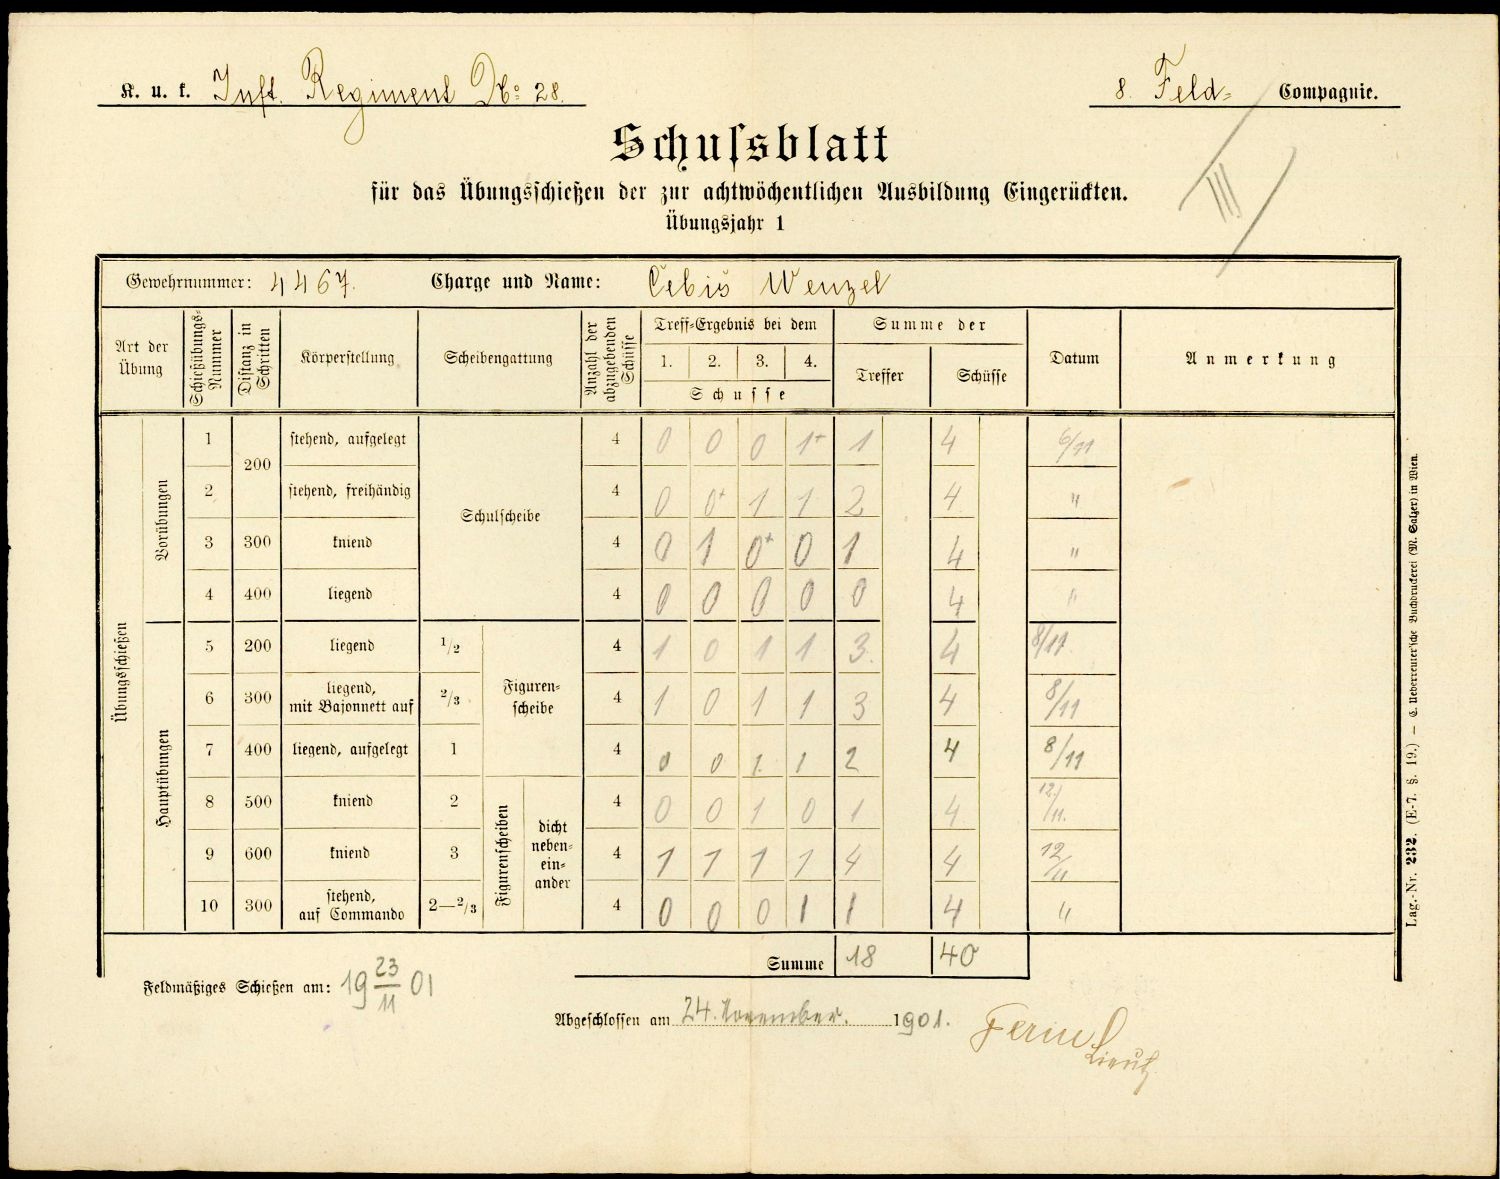 K. u. k. Inft. Regiment No. 28.
8. Feld= Compagnie.
III
Schussblatt
für das Übungsschießen der zur achtwöchentlichen Ausbildung Eingerückten.
Übungsjahr 1
Gewehrnummer: 4467. Charge und Name: Čebiš Wenzel
Art der Übung | Schießübungs-Nummer | Distanz in Schritten | Körperstellung | Scheibengattung | Anzahl der abzugebenden Schüsse | Treff-Ergebnis bei dem 1. 2. 3. 4. Schusse | Summe der Treffer | Schüsse | Datum | Anmerkung
Übungsschießen
Vorübungen
1 200 stehend, aufgelegt Schulscheibe 4 0 0 0 1+ 1 4 6/11
2 stehend, freihändig 4 0 0+ 1 1 2 4 "
3 300 kniend 4 0 1 0+ 0 1 4 "
4 400 liegend 4 0 0 0 0 0 4 "
Hauptübungen
5 200 liegend 1/2 Figuren-scheibe 4 1 0 1 1 3. 4 8/11.
6 300 liegend, mit Bajonnett auf 2/3 4 1 0 1 1 3 4 8/11
7 400 liegend, aufgelegt 1 4 0 0 1 1 2 4 8/11
8 500 kniend 2 Figurenscheiben dicht neben-ein-ander 4 0 0 1 0 1 4 12/11.
9 600 kniend 3 4 1 1 1 1 4 4 12/11
10 300 stehend, auf Commando 2—2/3 4 0 0 0 1 1 4 "
Summe 18 40
Feldmäßiges Schießen am: 19 23/11 01
Abgeschlossen am 24. November. 1901.
Lieut.
Lag.-Nr. 232. (E-7. §. 19.) — C. Ueberreuter'sche Buchdruckerei (M. Salzer) in Wien.